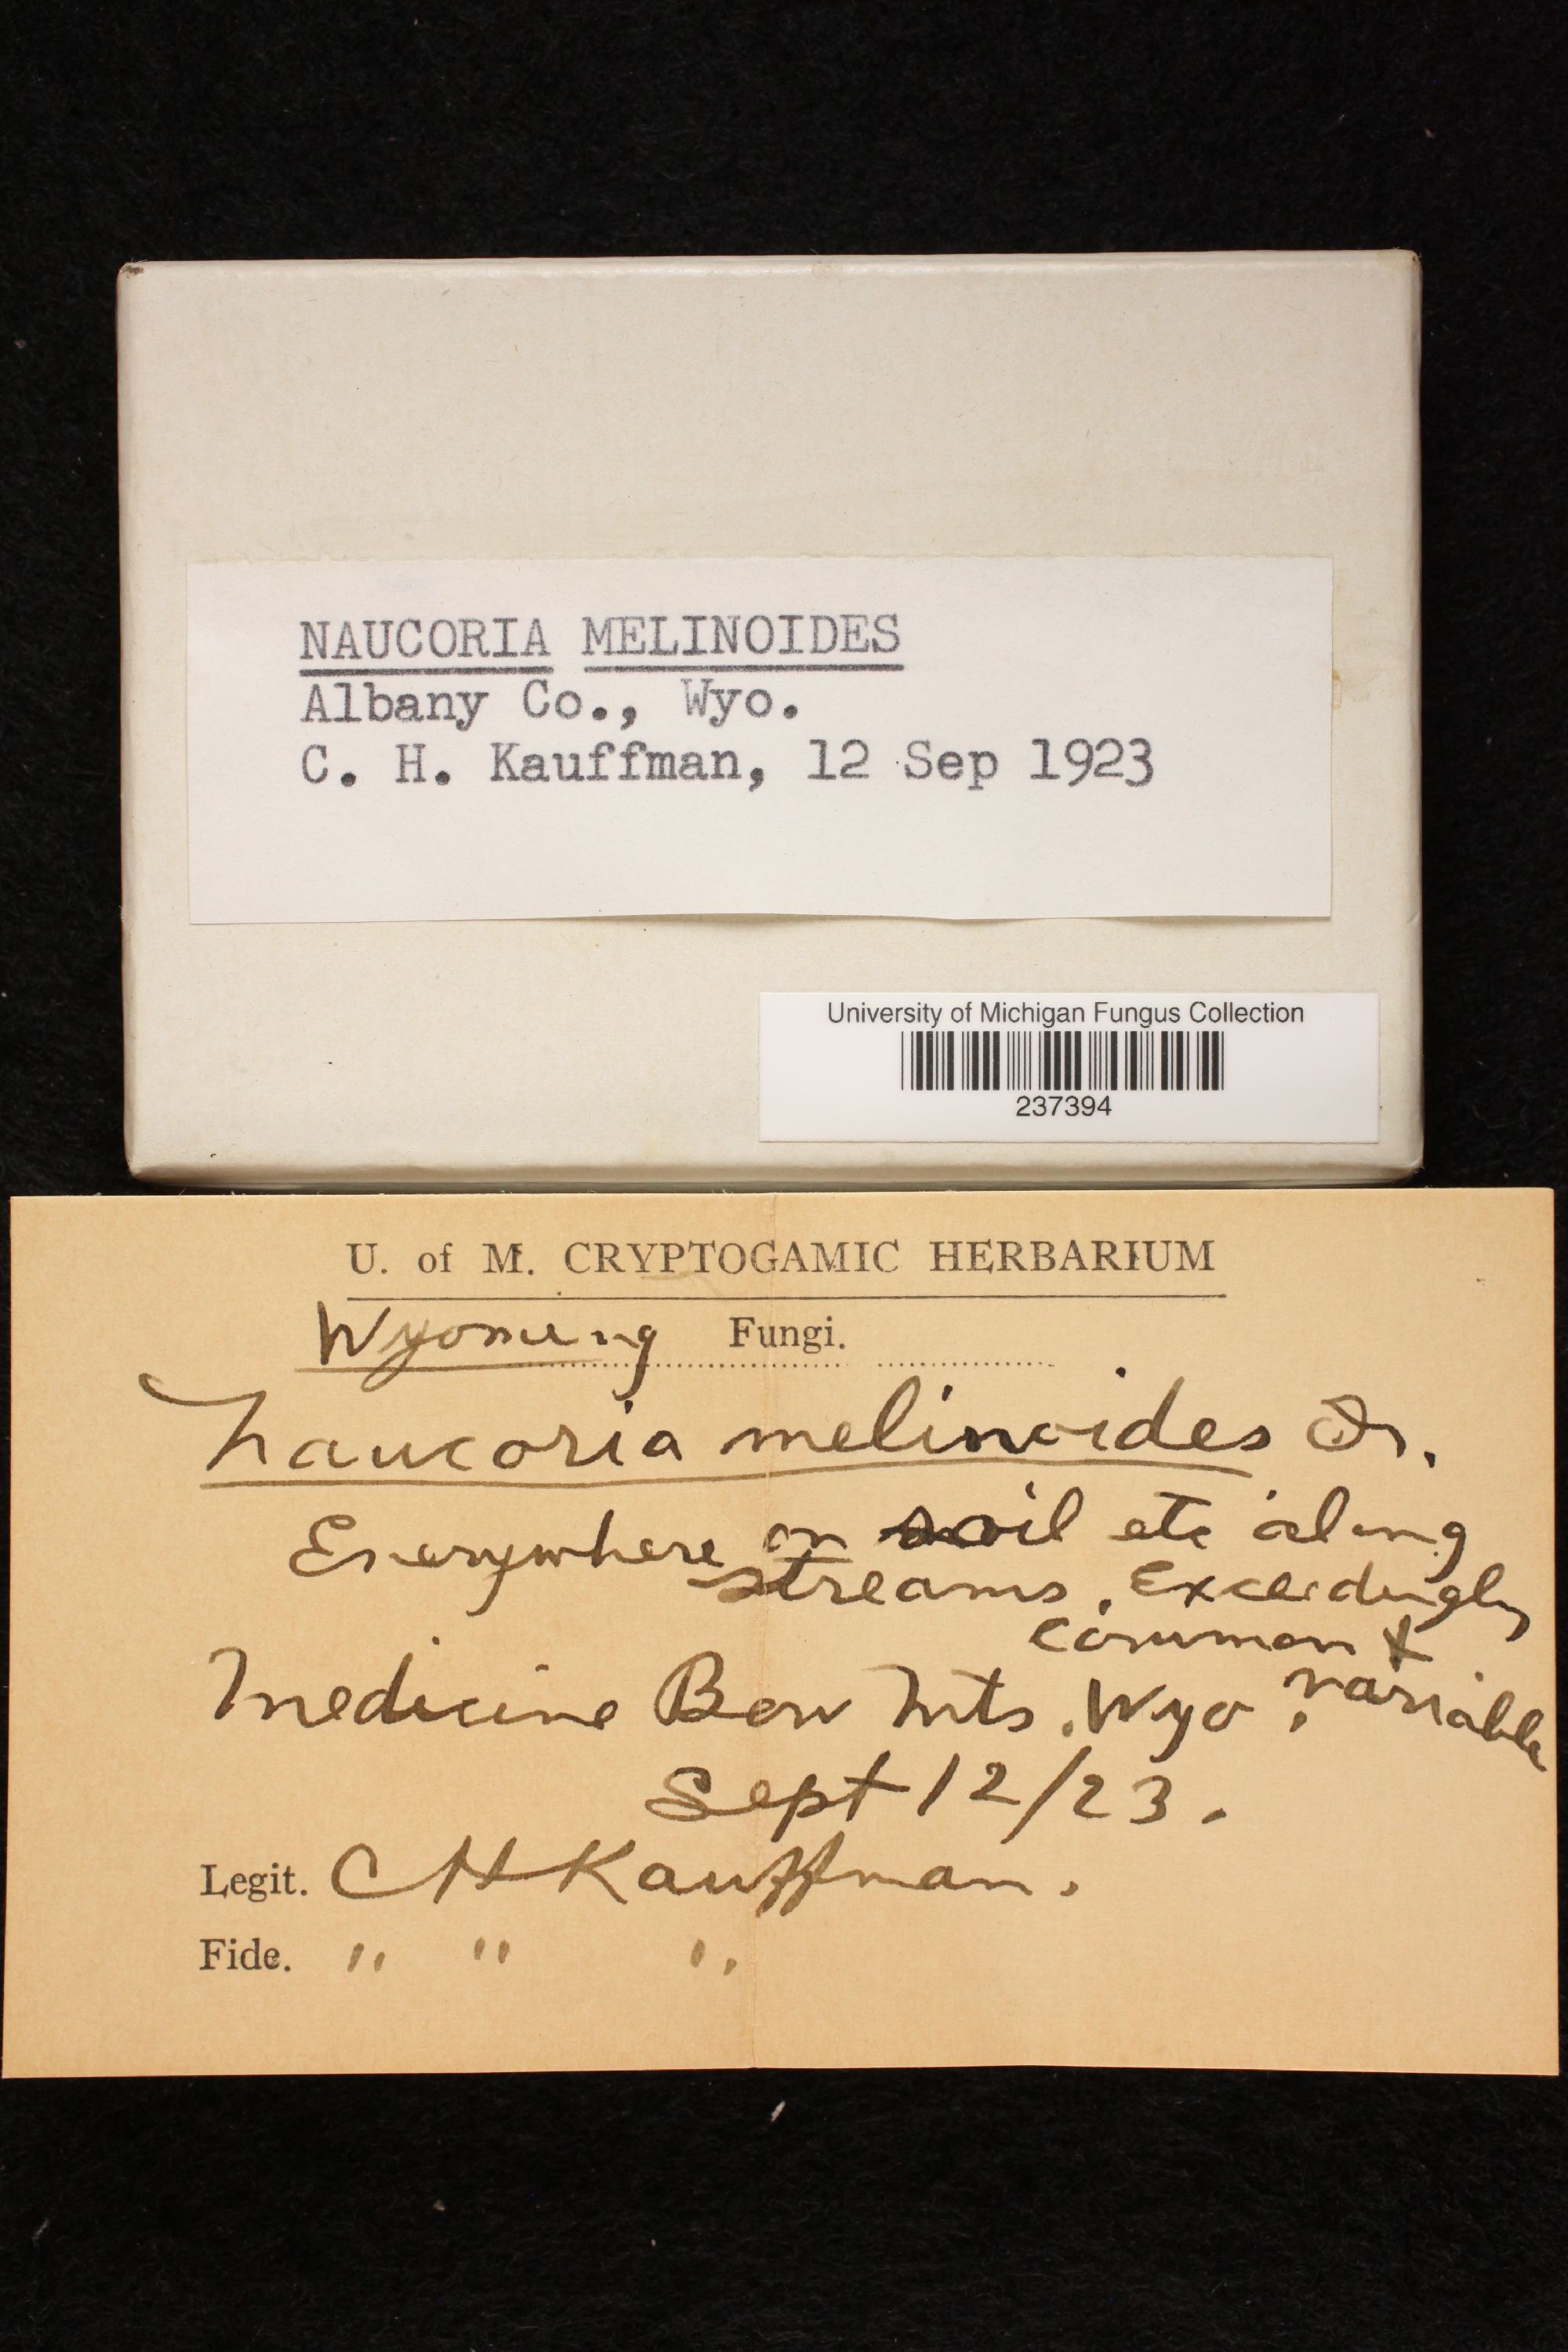 NAUCORIA MELINOIDES
Albany Co., Wyo.
C. H. Kauffman, 12 Sep 1923
University of Michigan Fungus Collection
237394
U. of M. CRYPTOGAMIC HERBARIUM
Wyoming Fungi.
Naucoria melinoides Fr.
Everywhere on soil etc along
streams. Exceedingly
common &
variable
Medicine Bow Mts. Wyo.
Sept 12/23.
Legit. C H Kauffman.
Fide. " " "